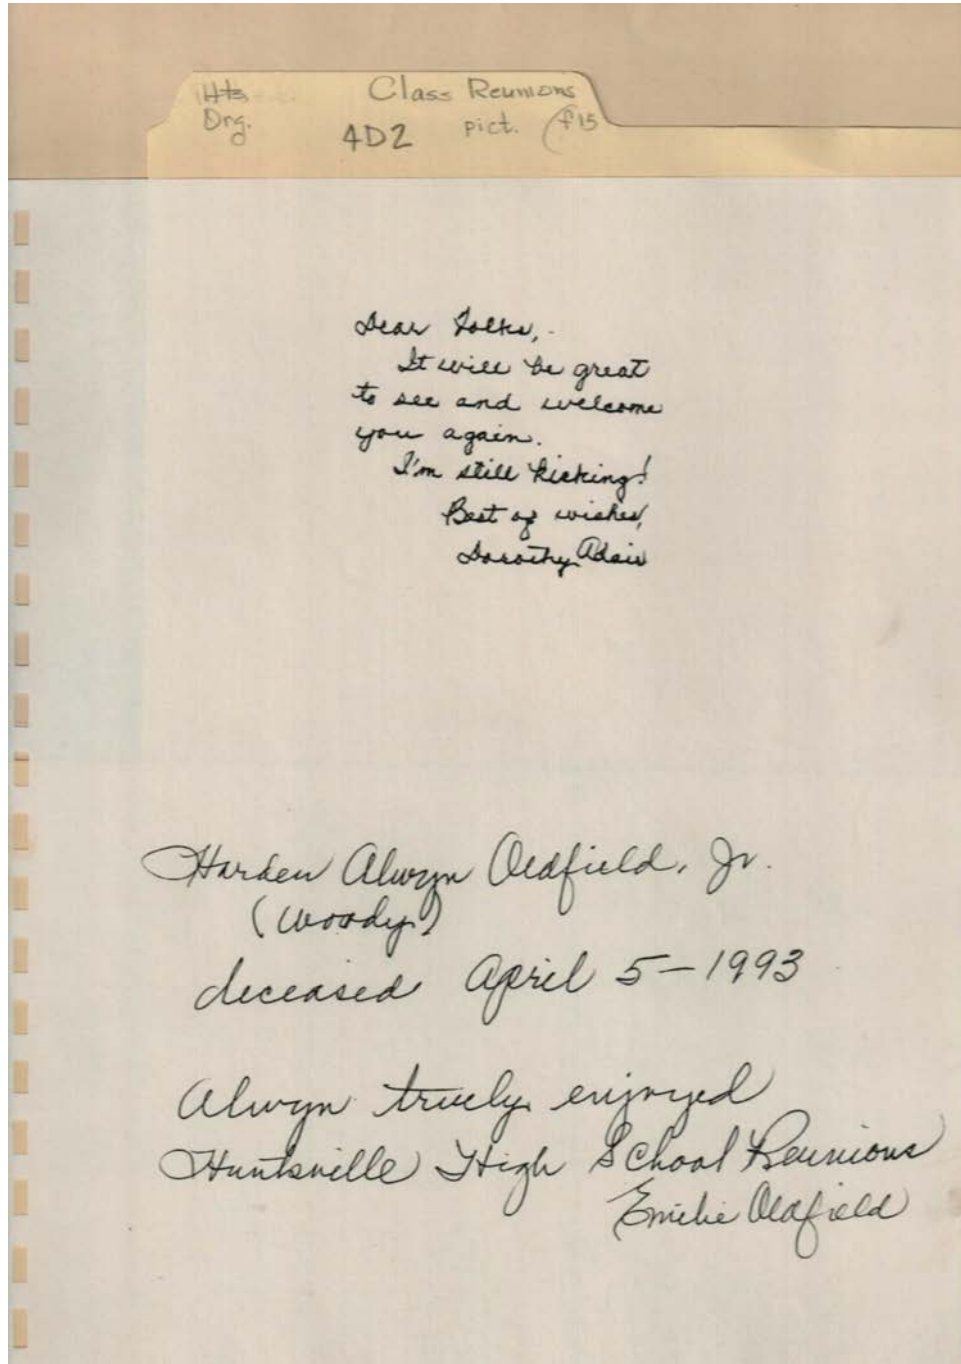 Hts
Class Reunions
Org.
4D2 pict. (f15
Dear Folks,
It will be great
to see and welcome
you again.
I'm still kicking!
Best of wishes,
Dorothy Adair
Harden Alwyn Oldfield, Jr.
(Woody)
deceased April 5-1993
Alwyn truely enjoyed
Huntsville High School Reunions
Emilie Oldfield